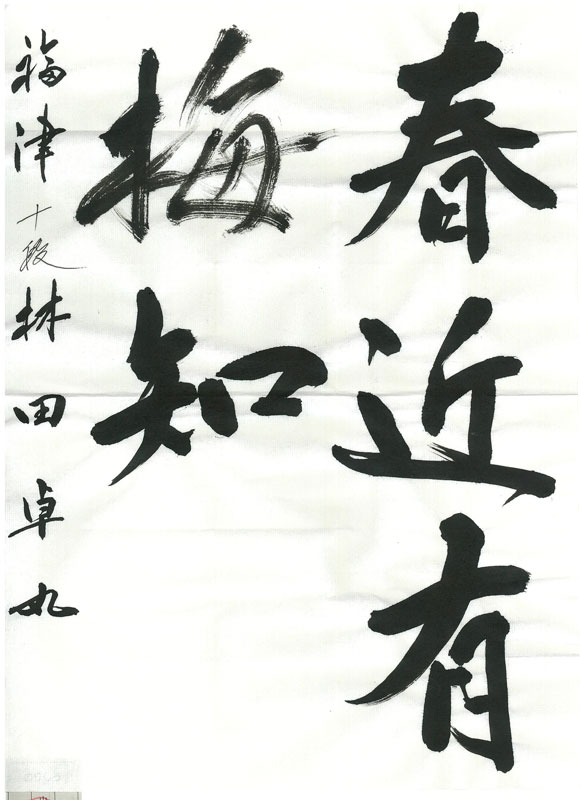 春近有
梅知
福津 十段 林田卓丸